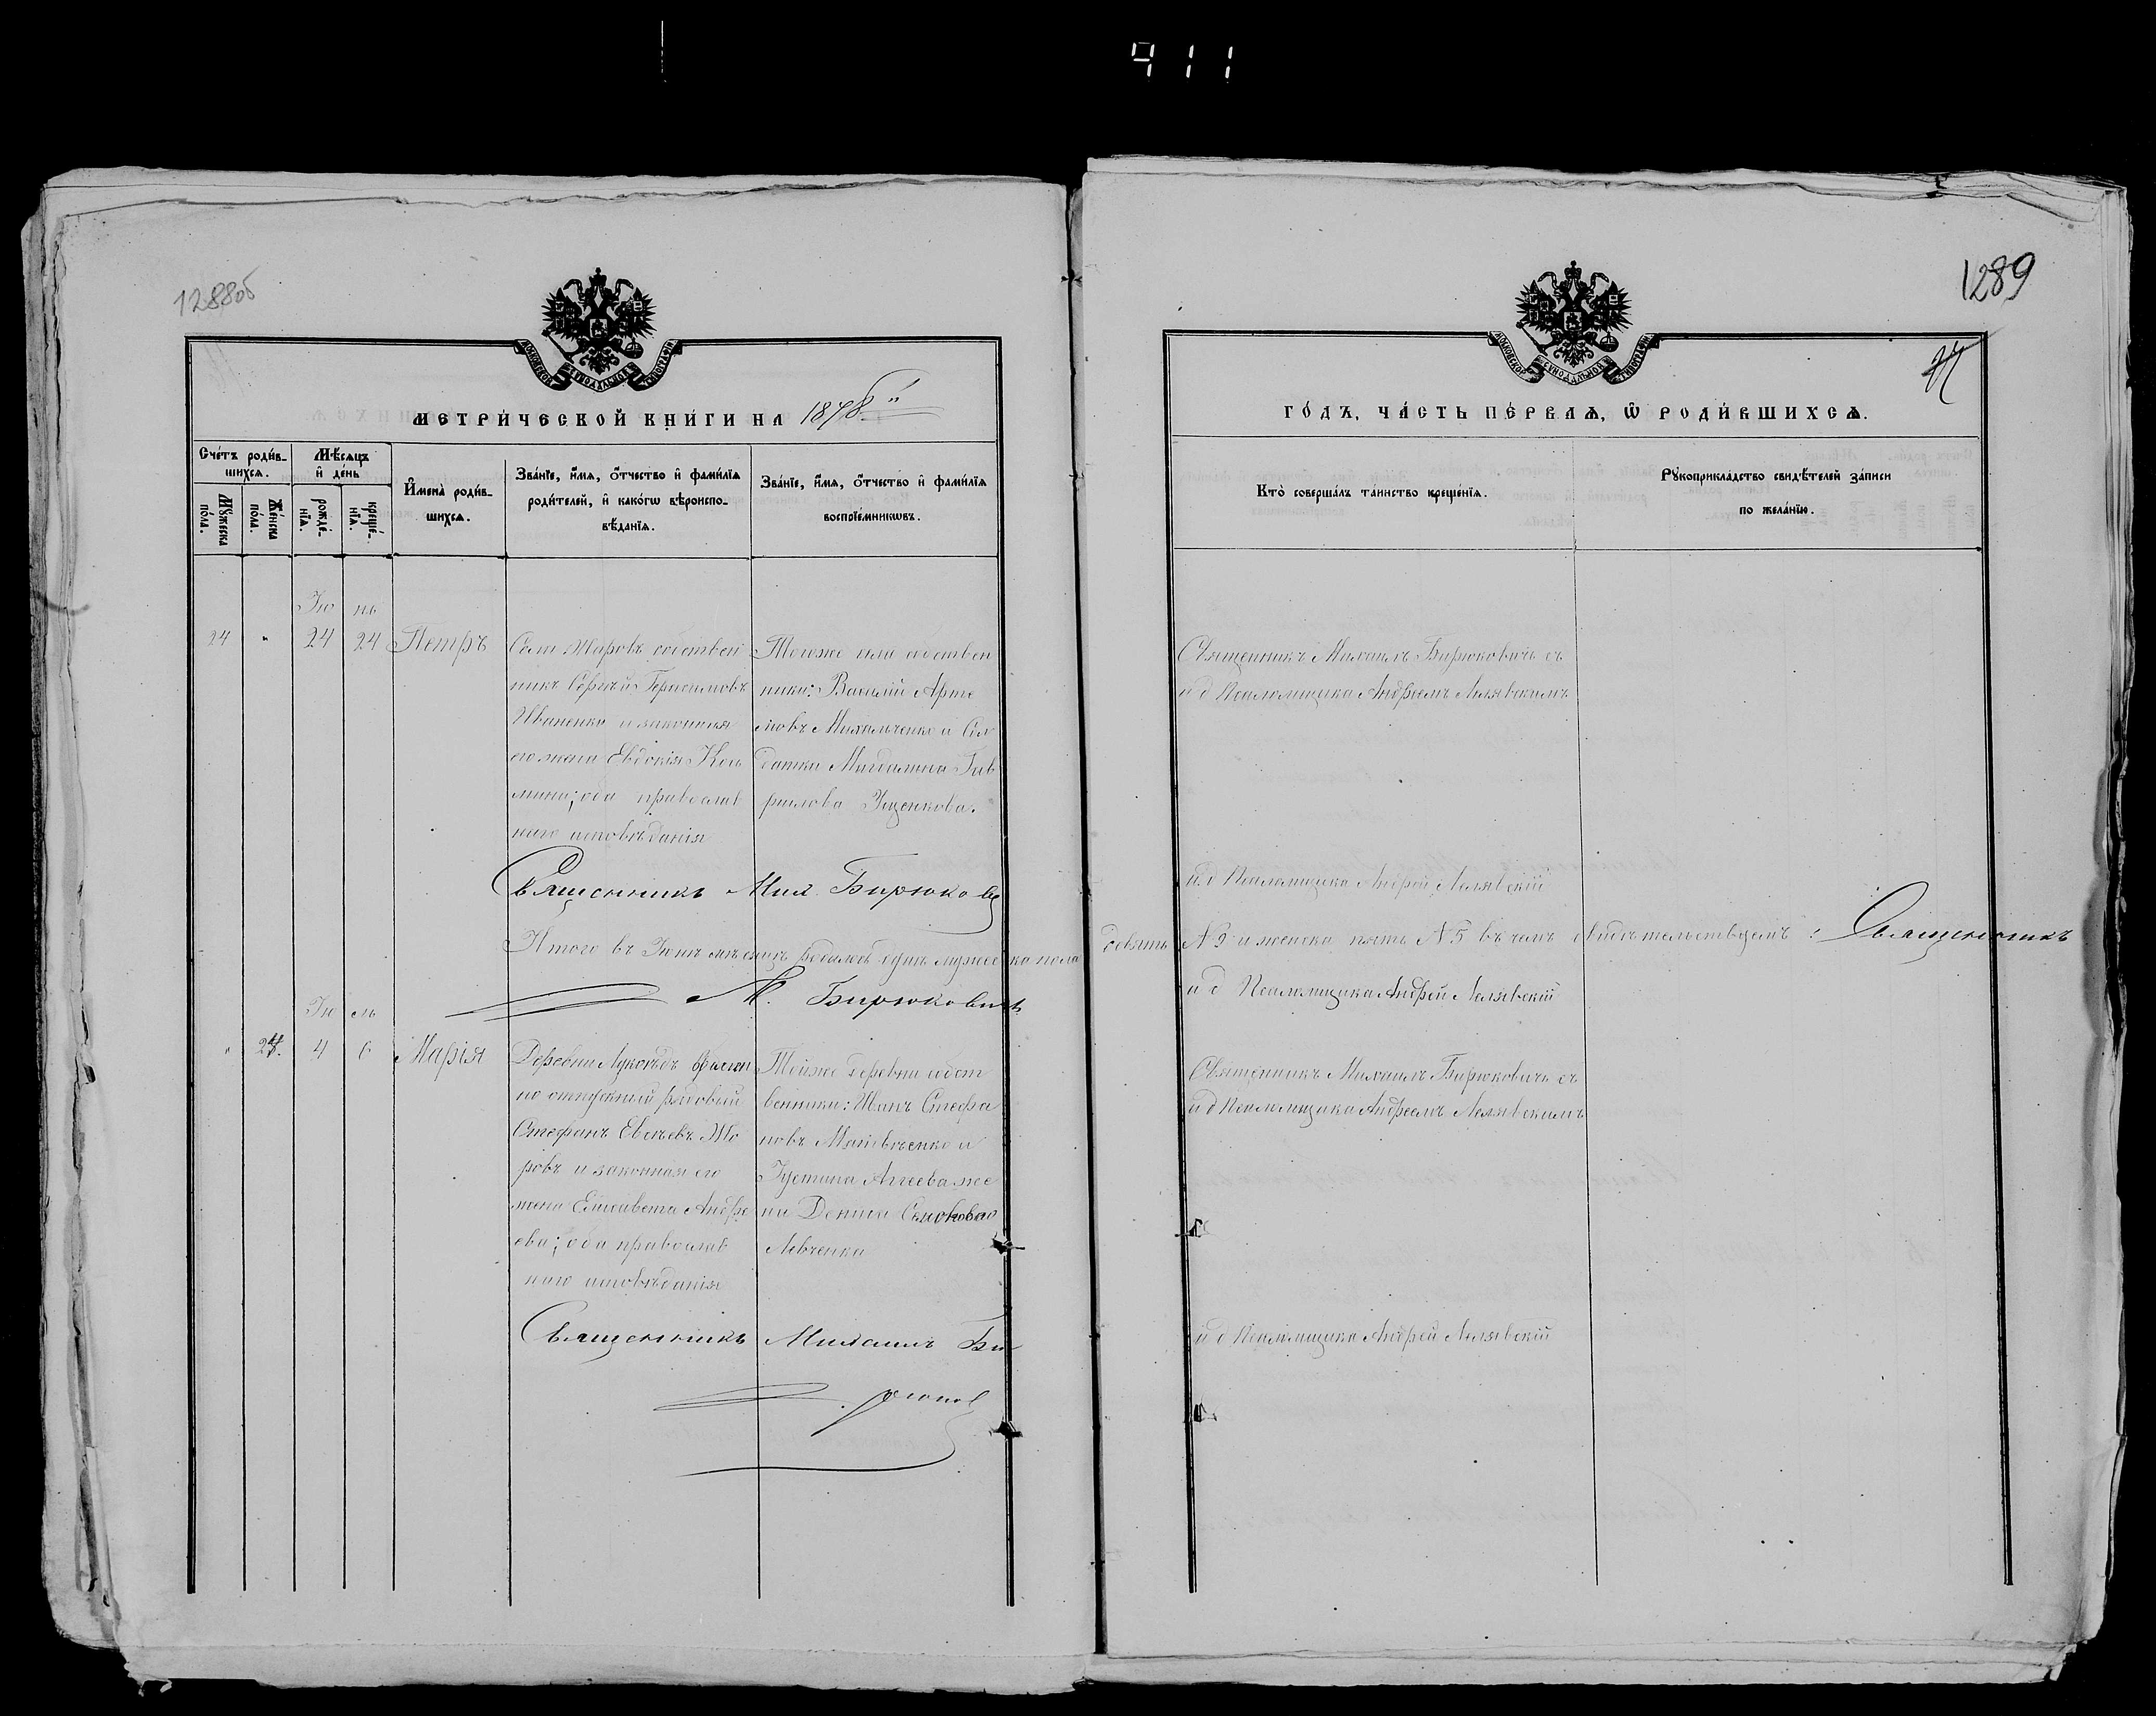 411
1288об
1289
МЕТРИ́ЧЕСКОЙ КНИ́ГИ НА 1878й
ГО́ДЪ, ЧА́СТЬ ПЕ́РВАЯ, Ѽ РОДИ́ВШИХСЯ.
Сче́тъ роди́в-
шихся.
Му́жеска
по́ла.
Же́нска
по́ла.
Мѣ́сяцъ
и̂ де́нь
рожде́-
нїя.
креще́-
нїя.
И̂мена̀ роди́в-
шихся.
Зва́нїе, и̂́мя, о̂́тчество и̂ фами́лїя
роди́телей, и̂ како́гѡ вѣроиспо-
вѣ́данїя.
Зва́нїе, и̂́мя, о̂́тчество и̂ фами́лїя
воспрїе́мникѡвъ.
Кто̀ соверша́лъ та́инство креще́нїя.
Рꙋкоприкла́дство свидѣ́телей за́писи
по жела́нїю.
Ію нь
24 " 24 24 Петръ
Села Жаровъ собствен
никъ Сергѣй Герасимовъ
Иваненко и законная
его жена Евдокія Кось
мина; оба православ
наго исповѣданія
Тогоже села собствен
ники: Василій Арте
мовъ Михальченко и Сол
датка Магдалина Гав
рилова Ященкова.
Священникъ Михаилъ Бирюковичъ съ
и д Псаломщика Андреемъ Лелявскимъ
Священникъ Мих. Бирюков
и.д Псаломщика Андрей Лелявскій
Итого въ Іюнѣ мѣсяцѣ родилось душъ мужеска пола девять № 9 и женска пять № 5 въ чемъ свидѣтельствуемъ: Священникъ
М. Бирюковичъ
и д Псаломщика Андрей Лелявскій
Ію ль
" 24. 4 6 Марія
Деревни
но отпускный рядовый
Стефанъ Евсѣевъ Жо
ровъ и законная его
жена Елисавета Андре
ева; оба православ
наго исповѣданія
Тойже деревни собст
венники: Иванъ Стефа
новъ Маковченко и
Іустина Агѣева же
на Дениса
Левченка
Священникъ Михаилъ Бирюковичъ съ
и д Псаломщика Андреемъ Лелявскимъ
Священникъ Михаилъ Би
рюков
и д Псаломщика Андрей Лелявскій